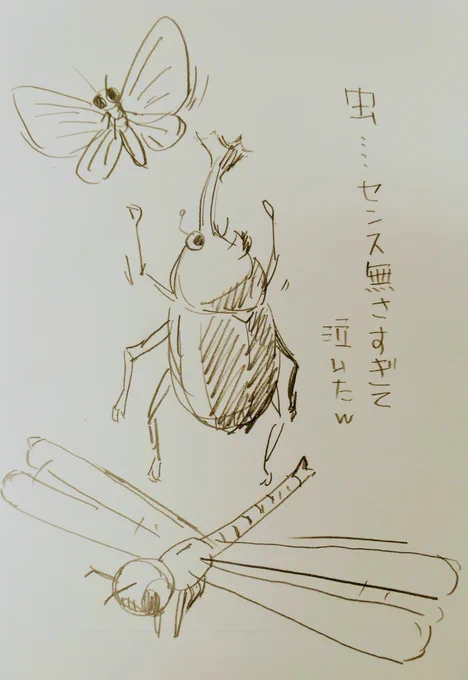 虫…センス無さすぎて
泣いたw